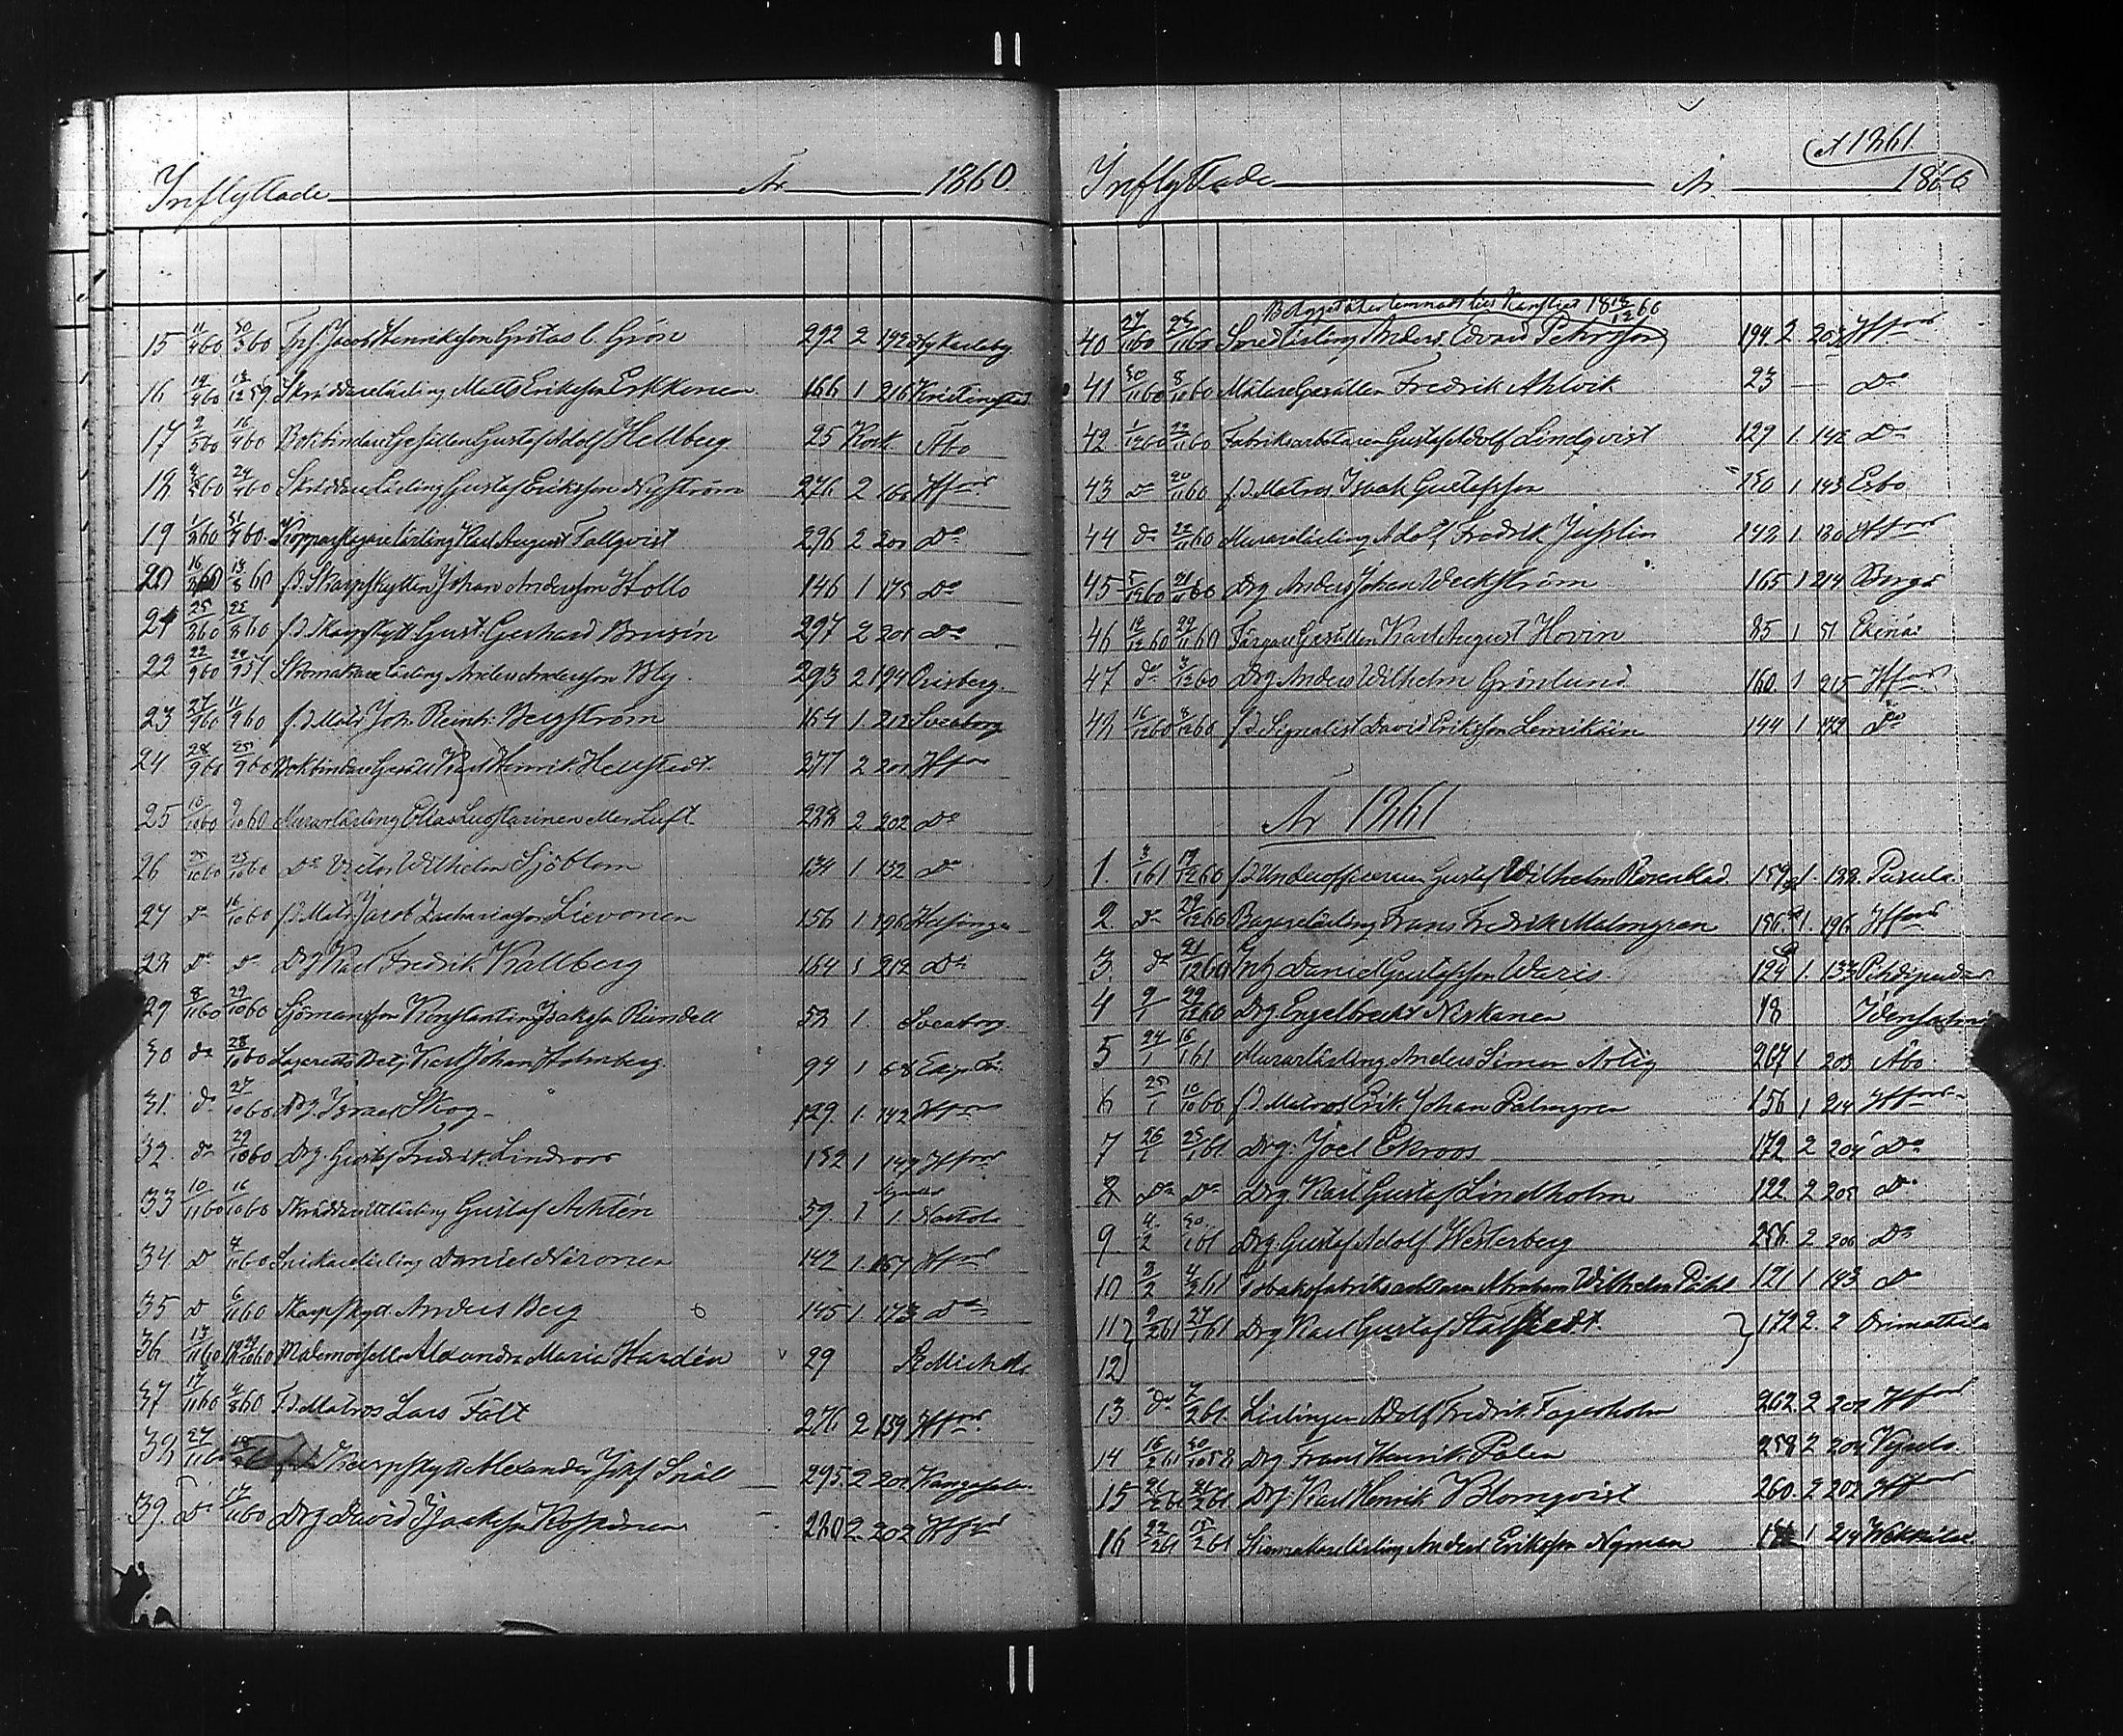 Inflyttade År 1860
15 11/4 60 30/3 60 Jacob Henriksson Grötas l. Grön 292 2 192 Ny Karleby
16 14/4 60 13/12 59 Skräddarelärling Matts Eriksson Erkkonen 166 1 216 Kristinestad
17 2/5 60 16/4 60 Bokbindare Gesällen Gustaf Adolf Hellberg 25 Åbo
18 60 24/4 60 Skräddare Lärling Gustaf Eriksson Nyström 276 2 160 Hfors
19 60 31/7 60 Kopparslagare lärling Karl August Tallqvist 296 2 201 Do
20 16 13/8 60 f.d. Skarpskytten Johan Andersson Hollo 146 1 175 Do
21 25 25/8 60 f.d. Skarpskytt Gust. Gerhard Brusin 297 2 201 Do
22 22/9 60 Skomakare Lärling Anders Andersson Bly 293 2 194 Orisberg
23 27/9 60 11/9 60 f.d. Mats Joh. Reinh. Bergström 164 1 212 Sveaborg
24 28/9 60 25/9 60 Bokbindare Gesäll Karl Henrik Hellstedt 277 2 201 Hfors
25 10/10 60 9/10 60 Murarlärling Elias Luostarinen eller Luft 222 2 202 Do
26 25/10 60 25/10 60 Do Victor Wilhelm Sjöblom 134 1 152 Do
27 Do 16/10 60 f.d. Mats Jacob Zachariasson Lievonen 156 1 196 Helsinge
28 Do Do Drg Karl Fredrik Kallberg 164 1 212 Do
29 8/11 60 29/10 60 Sjömansson Konstantin Isaksson Rundell 52 1 Sveaborg
30 Do 28/10 60 Karl Johan Holmberg 94 1 68
31 Do 27/10 60 Drg. Israel Skog 129 1 142 Hfors
32 Do 29/10 60 Drg. Gustaf Fredrik Lindroos 152 1 149 Hfors
33 10/11 60 16/10 60 Skräddarelärling Gustaf Achtén 59 1 1 Nastola
34 Do 4/10 60 Snickarelärling Daniel Nironen 142 1 157 Hfors
35 Do 6/11 60 Skarpskytt Anders Berg 145 1 173 Do
36 13/11 60 Mademoiselle Alexandra Maria Hardén 29 St Michel
37 17/11 60 4/8 60 F.d. Matros Lars Fält 276 2 159 Hfors
38 27/11 60 Skarpskytt Alexander Josef Snäll 295 2 201 Kangasala
39 Do 17/11 60 Drg David Isaksson Koskinen 220 2 202 Hfors
Inflyttade År 1860
et 1861
Betyget återlemnadt 18 60
40 27/11 60 60 Smedlärling Anders Edvard Petersson 194 2 203 Hfors
41 30/11 60 8/10 60 Målare Gesällen Fredrik Ahlvik 23 — Do
42 1/12 60 22/11 60 Fabriksarbetaren Gustaf Adolf Lindqvist 129 1 142 Do
43 Do 20/11 60 f.d. Matros Isaak Gustafsson 150 1 143 Esbo
44 Do 22/11 60 Murarelärling Adolf Fredrik Jusslin 142 1 130 Hfors
45 5/12 60 21/11 60 Drg Anders Johan Weckström 165 1 214 Borgå
46 12/12 60 29/11 60 Färgare Gesällen Karl August Hovin 85 1 51 Ekenäs
47 Do 3/12 60 Drg Anders Wilhelm Grönlund 160 1 215 Hfors
48 16/12 60 8/12 60 f.d. Signalist David Eriksson Lemikäin 144 1 142 Do
År 1861
1. 3/1 61 17/12 60 f.d. Underofficeren Gustaf Wilhelm Rosenblad 159 1 122 Pusula
2. Do 29/12 60 Bagarelärling Frans Fredrik Malmgren 156 1 196 Hfors
3. Do 21/12 60 Daniel Gustafsson Waris 124 1 133
4 9/1 29/12 60 Drg Engelbrecht Niskanen 48 Idensalmi
5 24/1 16/1 61 Murarlärling Anders Simon Arlig 267 1 203 Åbo
6 25/1 10/10 60 f.d. Matros Erik Johan Palmgren 156 1 214 Hfors
7 26/1 25/1 61 Drg. Joel Ekroos 172 2 204 Do
8 Do Do Drg Karl Gustaf Lindholm 122 2 205 Do
9 4/2 30/1 61 Drg Gustaf Adolf Westerberg 256 2 206 Do
10 8/2 4/2 61 Tobaksfabriksarbetaren Abraham Wilhelm 121 1 143 Do
11 9/2 61 27/1 61 Drg Karl Gustaf Stålstedt 172 2 2 Orimattila
12
13 Do 7/2 61 Lärlingen Adolf Fredrik Fagerholm 262 2 202 Hfors
14 16/2 61 30/10 58 Drg Frans Henrik Palen 259 2 204
15 21/2 61 21/2 61 Drg Karl Henrik Blomqvist 260 2 202 Hfors
16 22/2 61 15/2 61 Skomakarelärling Anders Eriksson Nyman 1 214